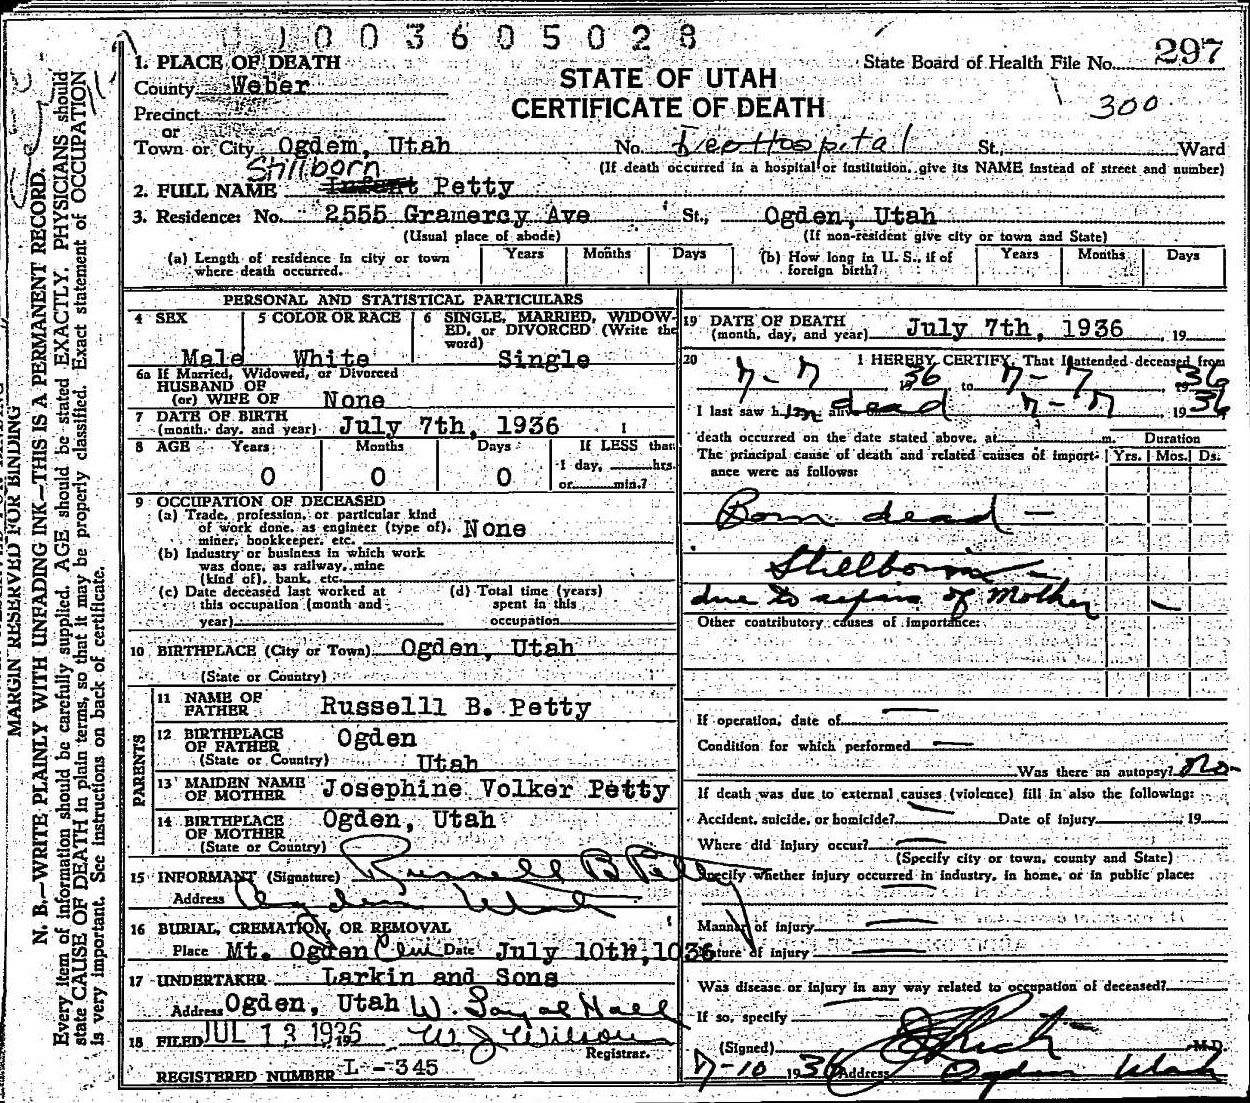 1003605028
1. PLACE OF DEATH
County Weber
STATE OF UTAH
CERTIFICATE OF DEATH
State Board of Health File No. 297
300
Precinct
or
Town or City Ogdem, Utah No. Dee Hospital St., Ward
(If death occurred in a hospital or institution, give its NAME instead of street and number)
Stillborn
2. FULL NAME Infant Petty
3. Residence: No. 2555 Gramercy Ave St., Ogden, Utah
(Usual place of abode) (If non-resident give city or town and State)
(a) Length of residence in city or town where death occurred. Years Months Days (b) How long in U. S., if of foreign birth? Years Months Days
PERSONAL AND STATISTICAL PARTICULARS
4 SEX 5 COLOR OR RACE 6 SINGLE, MARRIED, WIDOW-
ED, or DIVORCED (Write the
word)
Male White Single
6a If Married, Widowed, or Divorced
HUSBAND OF
(or) WIFE OF None
7 DATE OF BIRTH
(month, day, and year) July 7th, 1936
8 AGE Years Months Days If LESS than
1 day, hrs.
or min.?
0 0 0
9 OCCUPATION OF DECEASED
(a) Trade, profession, or particular kind
of work done, as engineer (type of),
miner, bookkeeper, etc. None
(b) Industry or business in which work
was done, as railway, mine
(kind of), bank, etc.
(c) Date deceased last worked at
this occupation (month and
year)
(d) Total time (years)
spent in this
occupation
10 BIRTHPLACE (City or Town) Ogden, Utah
(State or Country)
PARENTS
11 NAME OF
FATHER Russelll B. Petty
12 BIRTHPLACE
OF FATHER Ogden
(State or Country) Utah
13 MAIDEN NAME
OF MOTHER Josephine Volker Petty
14 BIRTHPLACE
OF MOTHER Ogden, Utah
(State or Country)
15 INFORMANT (Signature) Russell B Petty
Address Ogden Utah
16 BURIAL, CREMATION, OR REMOVAL
Place Mt. Ogden Cem Date July 10th, 1036
17 UNDERTAKER Larkin and Sons
Address Ogden, Utah W. Hall
18 FILED JUL 13 1936 19 W J Wilson
Registrar.
REGISTERED NUMBER L-345
19 DATE OF DEATH
(month, day, and year) July 7th, 1936 19
20 I HEREBY CERTIFY, That I attended deceased from
7-7 1936 to 7-7 1936
I last saw him alive dead 7-7, 1936
death occurred on the date stated above, at m. Duration
The principal cause of death and related causes of import-
ance were as follows: Yrs. Mos. Ds.
Born dead -
Stillborn -
due to sepsis of Mother
Other contributory causes of importance:
If operation, date of —
Condition for which performed —
Was there an autopsy? No-
If death was due to external causes (violence) fill in also the following:
Accident, suicide, or homicide? — Date of injury 19
Where did injury occur? —
(Specify city or town, county and State)
Specify whether injury occurred in industry, in home, or in public place:
—
Manner of injury —
Nature of injury —
Was disease or injury in any way related to occupation of deceased?
If so, specify —
(Signed) M.D.
7-10 1936 Address Ogden Utah
MARGIN RESERVED FOR BINDING
N. B.—WRITE PLAINLY WITH UNFADING INK—THIS IS A PERMANENT RECORD.
Every item of information should be carefully supplied. AGE should be stated EXACTLY. PHYSICIANS should
state CAUSE OF DEATH in plain terms, so that it may be properly classified. Exact statement of OCCUPATION
is very important. See instructions on back of certificate.